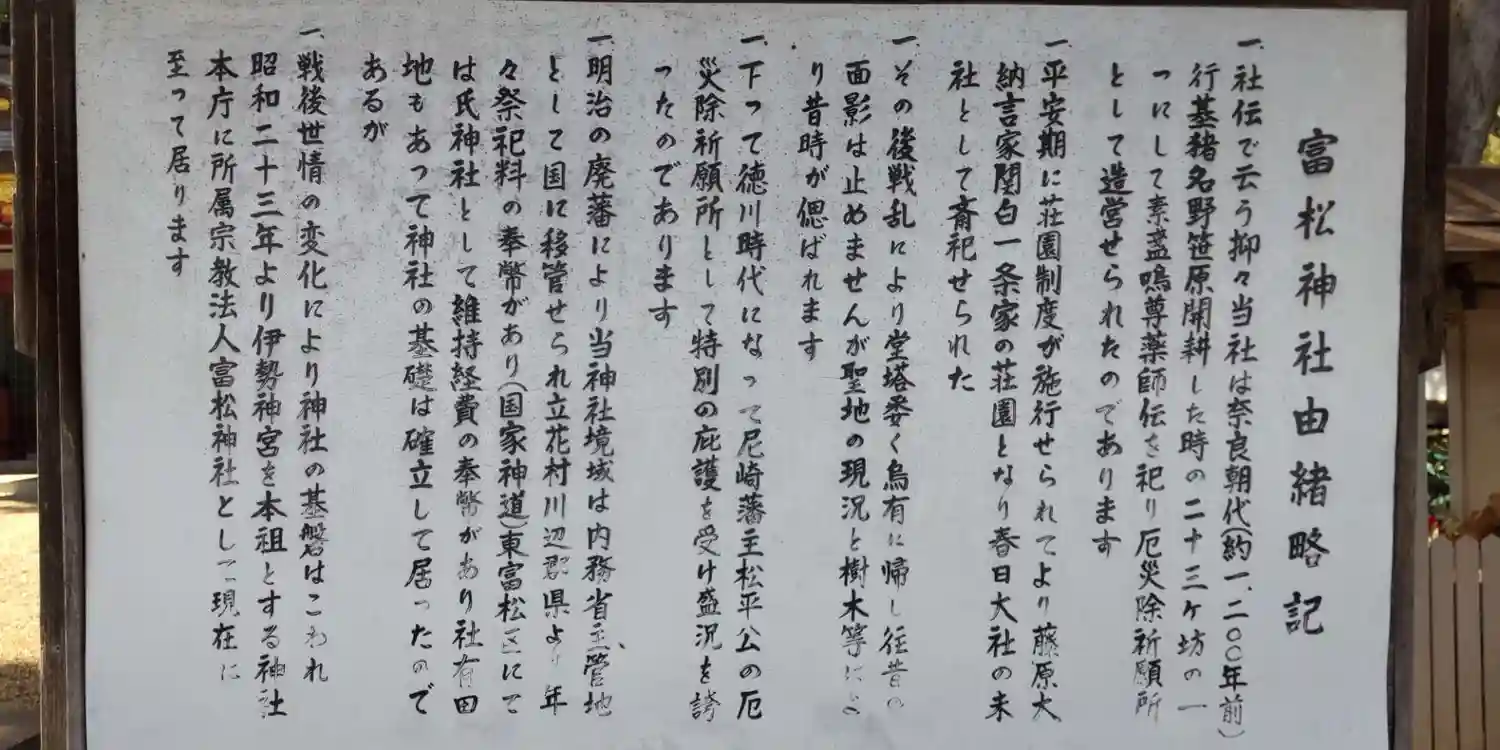 富松神社由緒略記
一、社伝で云う抑々当社は奈良朝代(約一、二〇〇年前)
行基猪名野笹原開耕した時の二十三ケ坊の一
つにして素盞嗚尊薬師伝を祀り厄災除祈願所
として造営せられたのであります
一、平安期に荘園制度が施行せられてより藤原大
納言家関白一条家の荘園となり春日大社の末
社として斎祀せられた
一、その後戦乱により堂塔委く烏有に帰し往昔の
面影は止めませんが聖地の現況と樹木等によ
り昔時が偲ばれます
一、下つて徳川時代になって尼崎藩主松平公の厄
災除祈願所として特別の庇護を受け盛況を誇
ったのであります
一、明治の廃藩により当神社境域は内務省主管地
として国に移管せられ立花村川辺郡県より年
々祭祀料の奉幣があり(国家神道)東富松区にて
は氏神社として維持経費の奉幣があり社有田
地もあつて神社の基礎は確立して居ったので
あるが
一、戦後世情の変化により神社の基盤はこわれ
昭和二十三年より伊勢神宮を本祖とする神社
本庁に所属宗教法人富松神社として現在に
至って居ります